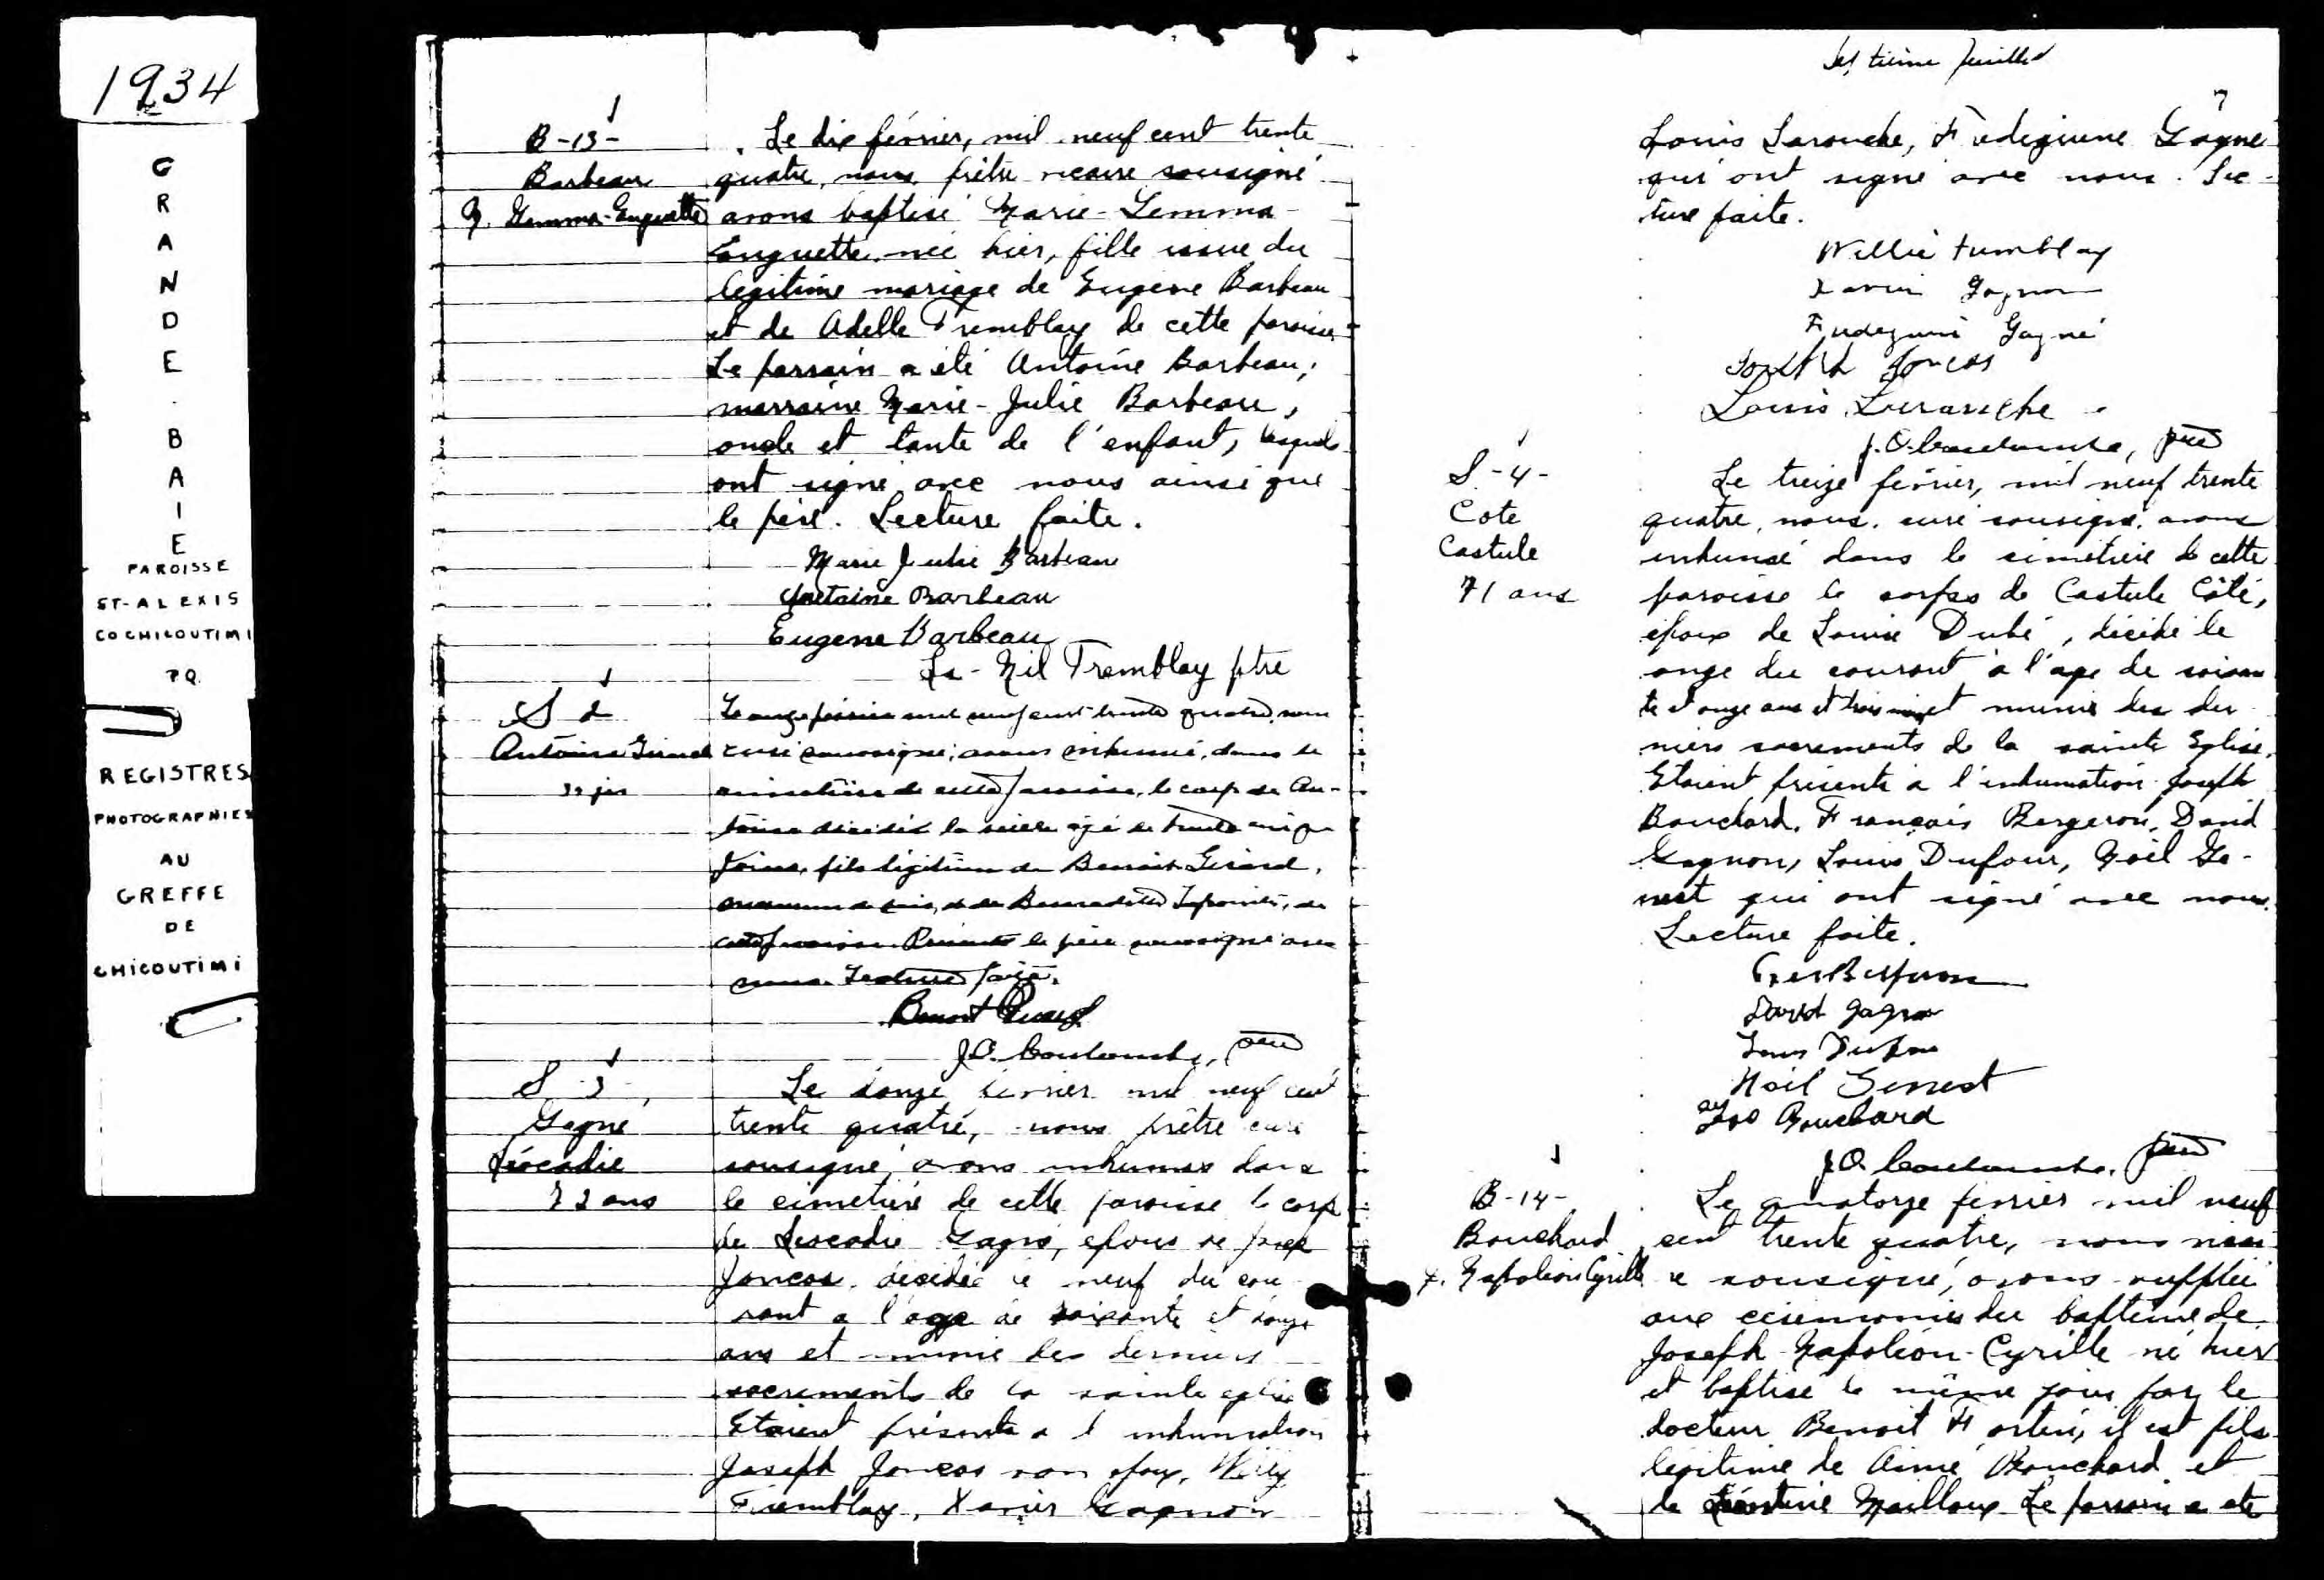 1934
GRANDE-BAIE
PAROISSE
ST-ALEXIS
CO CHICOUTIMI
P.Q.
REGISTRES
PHOTOGRAPHIES
AU
GREFFE
DE
CHICOUTIMI
B-13-
Barbeau
M. Gemma-Enguette
Le dix février, mil neuf cent trente
quatre, nous, prêtre vicaire soussigné
avons baptisé Marie-Gemma-
Enguette née hier, fille issue du
légitime mariage de Eugene Barbeau
et de Adelle Tremblay de cette paroisse
Le parrain a été Antoine Barbeau;
marraine Marie-Julie Barbeau,
oncle et tante de l'enfant, lesquels
ont signé avec nous ainsi que
le père. Lecture faite.
Marie Julie Barbeau
Antoine Barbeau
Eugene Barbeau
Ls-Nil Tremblay ptre
S 2
Antoine Girard
Le onze février mil neuf cent trente quatre, nous
curé soussigné, avons inhumé, dans le
cimetière de cette paroisse, le corps de An-
toine décédé la veille âgé de trente cinq
jours, fils légitime de Benoit Girard,
et de Bernadette Lapointe, de
cette paroisse. Présent le père soussigné avec
nous. Lecture faite.
Benoit Girard
J.O. Courtemanche, ptre
S 3
Gagné
Léocadie
72 ans
Le douze février mil neuf cent
trente quatre, nous prêtre curé
soussigné, avons inhumé dans
le cimetière de cette paroisse le corps
de Léocadie Gagné, épouse de Josep
Joncas, décédée le neuf du cou
rant a l'age de soixante et douze
ans et munie des derniers
sacrements de la sainte eglise
Etaient présents a l inhumation
Joseph Joncas son époux, Willy
Tremblay, Xavier Gagnon
Septième feuillet
7
Louis Larouche, Frédégiune Gagné
qui ont signé avec nous. Lec-
ture faite.
Willie tremblay
Xavier Gagnon
Gagné
Joseph Joncas
Louis Larouche
J.O. Courtemanche, ptre
S-4-
Cote
Castule
71 ans
Le treize février, mil neuf trente
quatre, nous, curé soussigné, avons
inhumé dans le cimetière de cette
paroisse le corps de Castule Côté,
époux de Louise Dubé, décédé le
onze du courant à l'age de soixan
te et onze ans et trois mois et munis des der
niers sacrements de la sainte Eglise.
Etaient présents à l'inhumation Joseph
Bouchard, François Bergeron, David
Gagnon, Louis Dufour, Noël Ge-
nest qui ont signé avec nous.
Lecture faite.
Frs Bergeron
David Gagnon
Louis Dufour
Noël Genest
Jos Bouchard
J.O. Courtemanche, ptre
B-14-
Bouchard
J. Napoléon Cyrille
Le quatorze fevrier mil neuf
cent trente quatre, nous vicai
re soussigné, avons suppléé
aux cérémonies du baptême de
Joseph-Napoléon-Cyrille né hier
et baptisé le même jour par le
docteur Benoit Fortin, il est fils
légitime de Aimé Bouchard et
de Léontine Mailloux. Le parrain a été